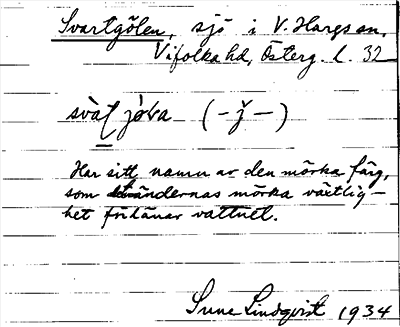 Svartgölen, sjö i V. Hargs sn,
Vifolka hd, Österg. l. 32
(–ǯ–)
Har sitt namn av den mörka färg,
som strändernas mörka växtlig-
het förlänar vattnet.
Sune Lindqvist 1934